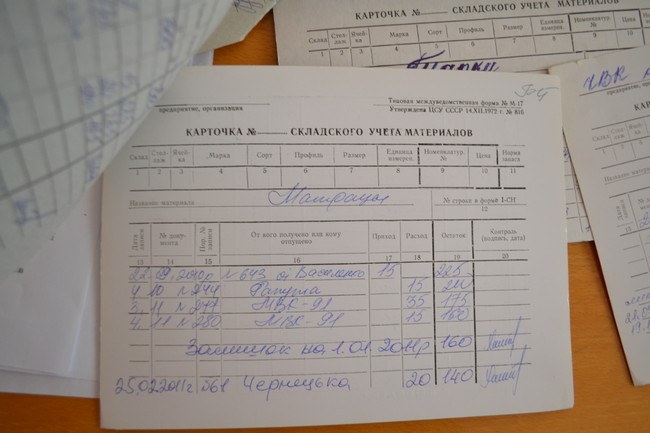 КАРТОЧКА № СКЛАДСКОГО УЧЕТА МАТЕРИАЛОВ
Склад Стел-лаж Ячей-ка Марка Сорт Профиль Размер Единица измерен. Номенклатур. № Цена
1 2 3 4 5 6 7 8 9 10
Парки
предприятие, организация
Типовая междуведомственная форма № М-17
Утверждена ЦСУ СССР 14.XII.1972 г. № 816
КАРТОЧКА № СКЛАДСКОГО УЧЕТА МАТЕРИАЛОВ
Склад Стел-лаж Ячей-ка Марка Сорт Профиль Размер Единица измерен. Номенклатур. № Цена Норма запаса
1 2 3 4 5 6 7 8 9 10 11
Название материала Матрацы № строки в форме 1-СН
12
Дата записи № доку-мента Пор. № записи От кого получено или кому отпущено Приход Расход Остаток Контроль (подпись, дата)
13 14 15 16 17 18 19 20
22.09.2010р. №643 от Василенко 15 225
4 10 №244 15 210
3. 11 №277 МВК-91 35 175
4. 11 №280 МВК-91 15 160
Залишок на 1.01.2011р 160
25.02.2011г 561 Чернецька 20 140